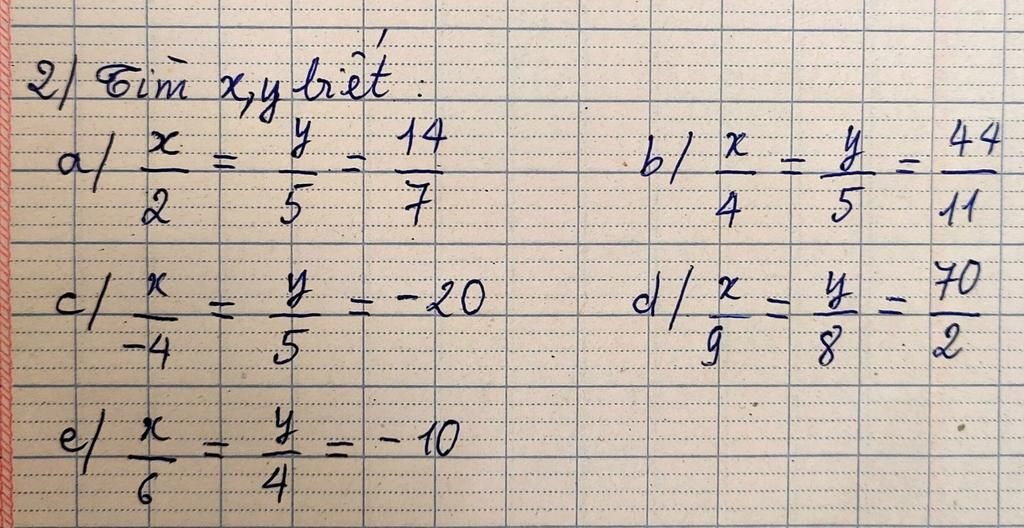 2/ Tìm x, y biết :
a/ x/2 = y/5 = 14/7   b/ x/4 = y/5 = 44/11
c/ x/-4 = y/5 = -20   d/ x/9 = y/8 = 70/2
e/ x/6 = y/4 = -10